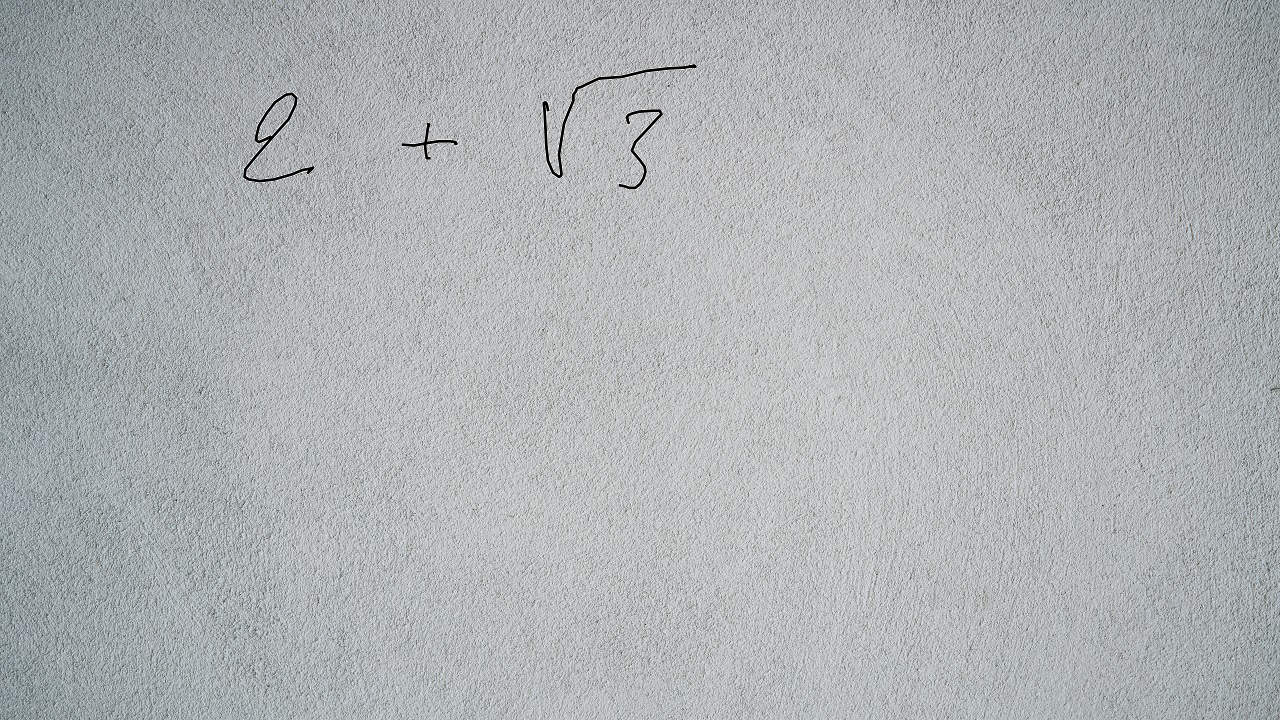 2 + √3